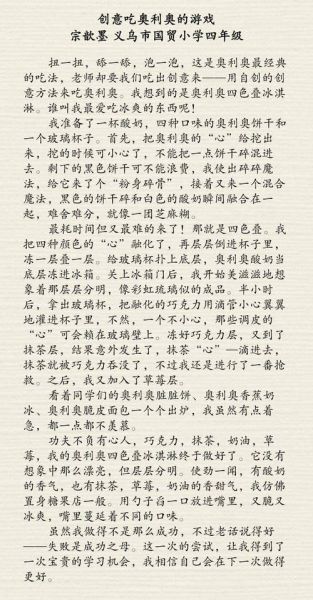 创意吃奥利奥的游戏
宗歆墨 义乌市国贸小学四年级
扭一扭，舔一舔，泡一泡，这是奥利奥最经典
的吃法，老师却要我们吃出创意来——用自创的创
意方法来吃奥利奥。我想到的是奥利奥四色叠冰淇
淋。谁叫我最爱吃冰爽的东西呢！
我准备了一杯酸奶，四种口味的奥利奥饼干和
一个玻璃杯子。首先，把奥利奥的“心”给挖出
来，挖的时候可小心了，不能把一点饼干碎混进
去。剩下的黑色饼干可不能浪费，我使出碎碎魔
法，给它来了个“粉身碎骨”，接着又来一个混合
魔法，黑色的饼干碎和白色的酸奶瞬间融合在一
起，难舍难分，就像一团芝麻糊。
最耗时间但又最难的来了！那就是四色叠。我
把四种颜色的“心”融化了，再层层倒进杯子里，
冻一层叠一层。给玻璃杯扑上底层，奥利奥酸奶当
底层冻进冰箱。关上冰箱门后，我开始美滋滋地想象
着那层层分明，像彩虹琉璃似的成品。半小时
后，拿出玻璃杯，把融化的巧克力用滴管小心翼翼
地灌进杯子里，不然，一个不小心，那些调皮的
“心”可会赖在玻璃壁上。冻好巧克力层，又到了
抹茶层，结果意外发生了，抹茶“心”一滴进去，
抹茶就被巧克力吞没了，不过我还是进行了一番抢
救。之后，我又加入了草莓层。
看着同学们的奥利奥脏脏饼、奥利奥香蕉奶
冰、奥利奥脆皮面包一个个出炉，我虽然有点着
急，都一点都不羡慕。
功夫不负有心人，巧克力，抹茶，奶油，草
莓，我的奥利奥四色叠冰淇淋终于做好了。它没有
想象中那么漂亮，但层层分明。使劲一闻，有酸奶
的香气，也有抹茶，草莓，奶油的香甜气，我仿佛
置身糖果店一般。用勺子舀一口放进嘴里，又脆又
冰爽，嘴里蔓延着不同的口味。
虽然我做得不是那么成功，不过老话说得好
——失败是成功之母。这一次的尝试，让我得到了
一次宝贵的学习机会，我相信自己会在下一次做得
更好。